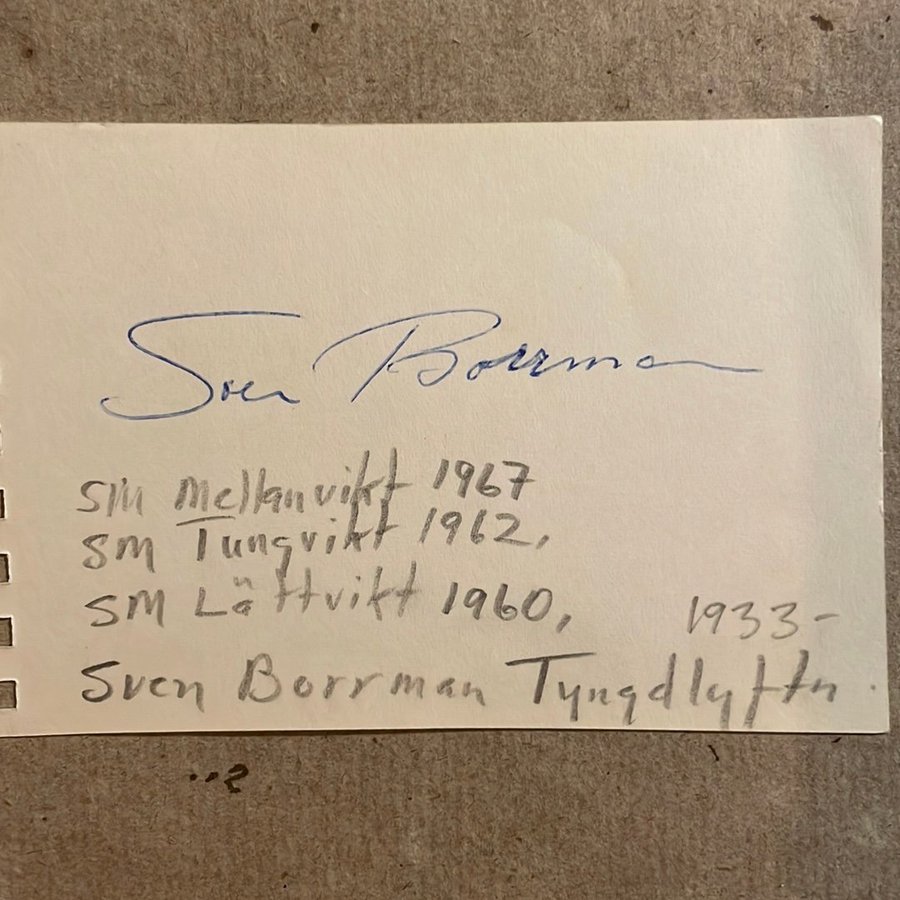 Sven Borrman
SM Mellanvikt 1967
SM Tungvikt 1962,
SM Lättvikt 1960,
1933-
Sven Borrman Tyngdlyftn.